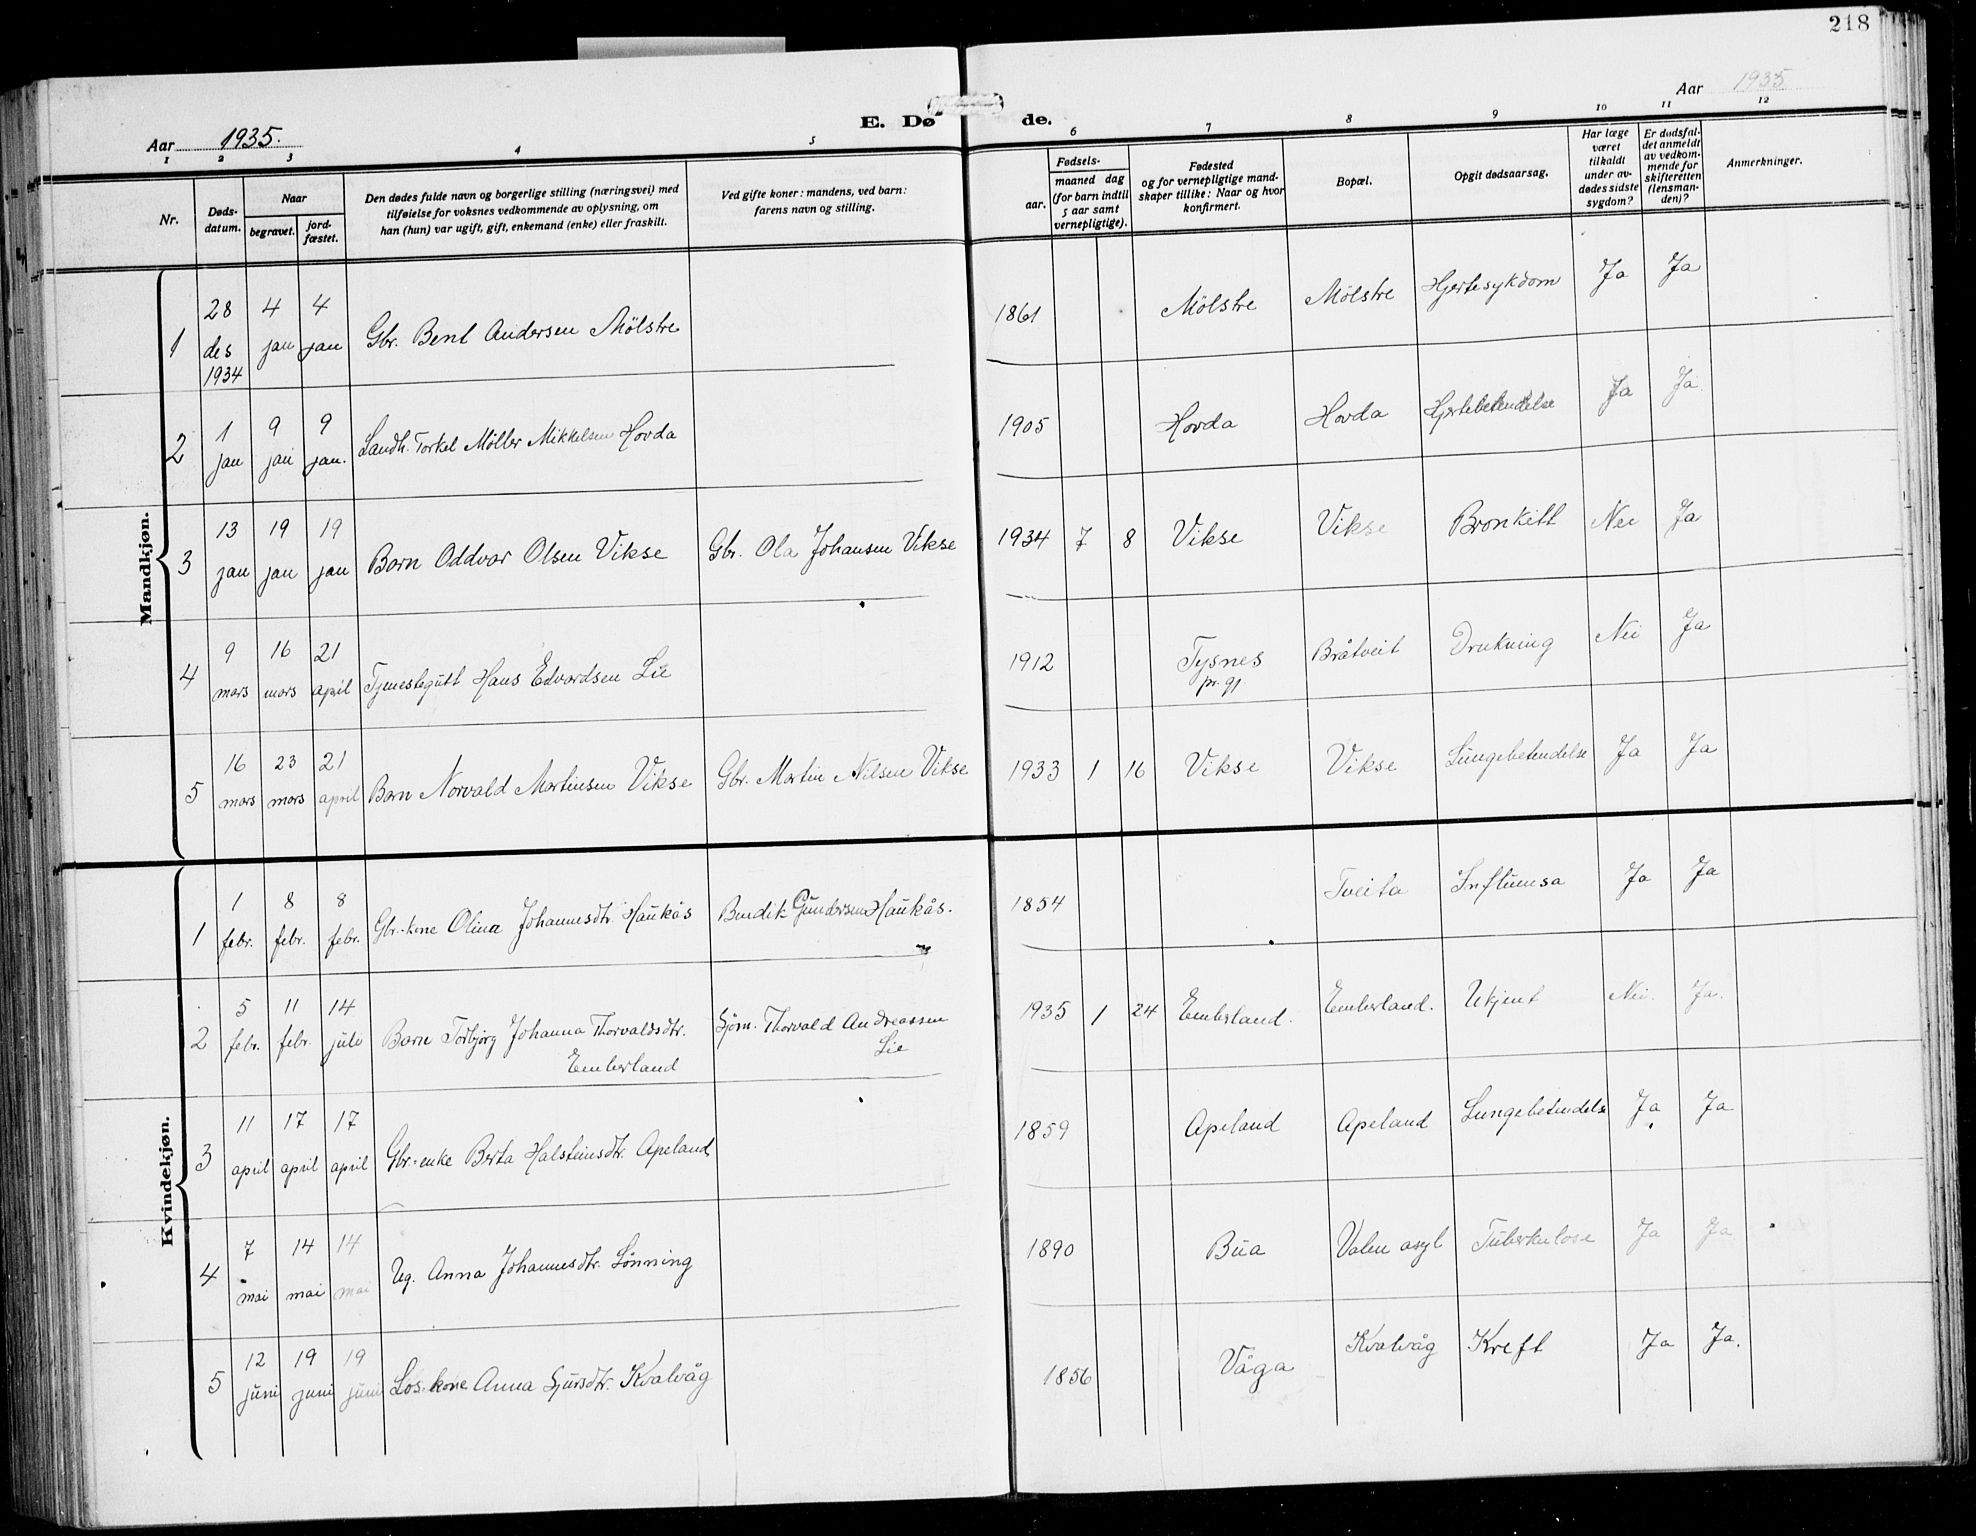 218
Aar 1935.
E. Dø de.
Aar 1935
1 2 3 4 5 6 7 8 9 10 11 12
Nr.
Døds-
datum.
Naar
begravet.
jord-
fæstet.
Den dødes fulde navn og borgerlige stilling (næringsvei) med
tilføielse for voksnes vedkommende av oplysning, om
han (hun) var ugift, gift, enkemand (enke) eller fraskilt.
Ved gifte koner: mandens, ved barn:
farens navn og stilling.
Fødsels-
aar.
maaned dag
(for barn indtil
5 aar samt
vernepligtige).
Fødested
og for vernepligtige mand-
skaper tillike: Naar og hvor
konfirmert.
Bopæl.
Opgit dødsaarsag.
Har læge
været
tilkaldt
under av-
dødes sidste
sygdom?
Er dødsfal-
det anmeldt
av vedkom-
mende for
skifteretten
(lensman-
den)?
Anmerkninger.
Mandkjøn.
1 28 des 1934 4 jan 4 jan Gbr. Bent Andersen Mölstre 1861 Mölstre Mölstre Hjertesykdom Ja Ja
2 1 jan 9 jan 9 jan. Landh. Torkel Møller Mikkelsen Hovda 1905 Hovda Hovda Hjertebetendelse Ja Ja.
3 13 jan 19 jan 19 jan Barn Oddvar Olsen Vikse Gbr. Ola Johansen Vikse 1934 7 8 Vikse Vikse Bronkitt Nei Ja
4 9 mars 16 mars 21 april Tjenestegutt Hans Edvardsen Lie 1912 Tysnes
pr. gj. Bråtveit Drukning Nei Ja
5 16 mars 23 mars 21 april Barn Norvald Martinsen Vikse Gbr. Martin Nilsen Vikse 1933 1 16 Vikse Vikse Lungebetendelse Ja Ja
Kvindekjøn.
1 1 febr. 8 febr. 8 febr. Gbr.-kone Olina Johannesdtr. Haukås Bendik Gundersen Haukås. 1854 Tveita Influensa Ja Ja
2 5 febr. 11 febr. 14 juli Barn Torbjörg Johanna Thorvaldsdtr.
Emberland Sjöm. Thorvald Andreassen
Lie 1935 1 24 Emberland. Emberland. Ukjent Nei. Ja.
3 11 april 17 april 17 april Gbr.-enke Berta Halsteinsdtr. Apeland 1859 Apeland Apeland Lungebetendelse Ja Ja
4 7 mai 14 mai 14 mai Ug. Anna Johannesdtr. Lønning 1890 Bua Valen asyl Tuberkulose Ja Ja
5 12 juni 19 juni 19 juni Los-kone Anna Sjursdtr. Kvalvåg 1856 Våga Kvalvåg Kreft Ja Ja.